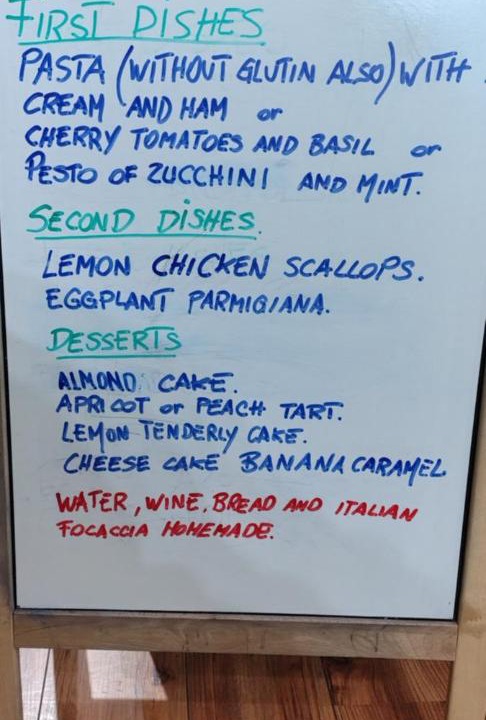 FIRST DISHES
PASTA (WITHOUT GLUTIN ALSO) WITH
CREAM AND HAM or
CHERRY TOMATOES AND BASIL or
PESTO OF ZUCCHINI AND MINT.
SECOND DISHES.
LEMON CHICKEN SCALLOPS.
EGGPLANT PARMIGIANA.
DESSERTS
ALMOND CAKE.
APRICOT or PEACH TART.
LEMON TENDERLY CAKE.
CHEESE CAKE BANANA CARAMEL
WATER, WINE, BREAD AND ITALIAN
FOCACCIA HOMEMADE.